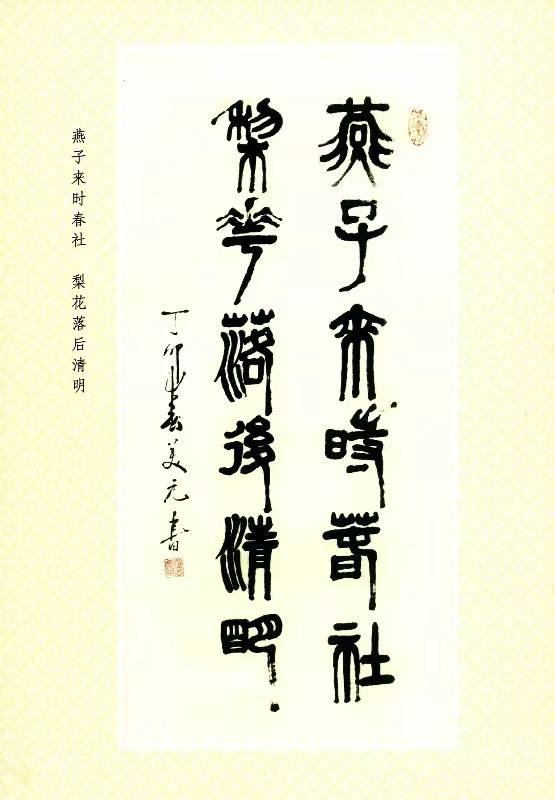 燕子來時春社
梨華落後清明
丁卯年春美元書
燕子来时春社 梨花落后清明